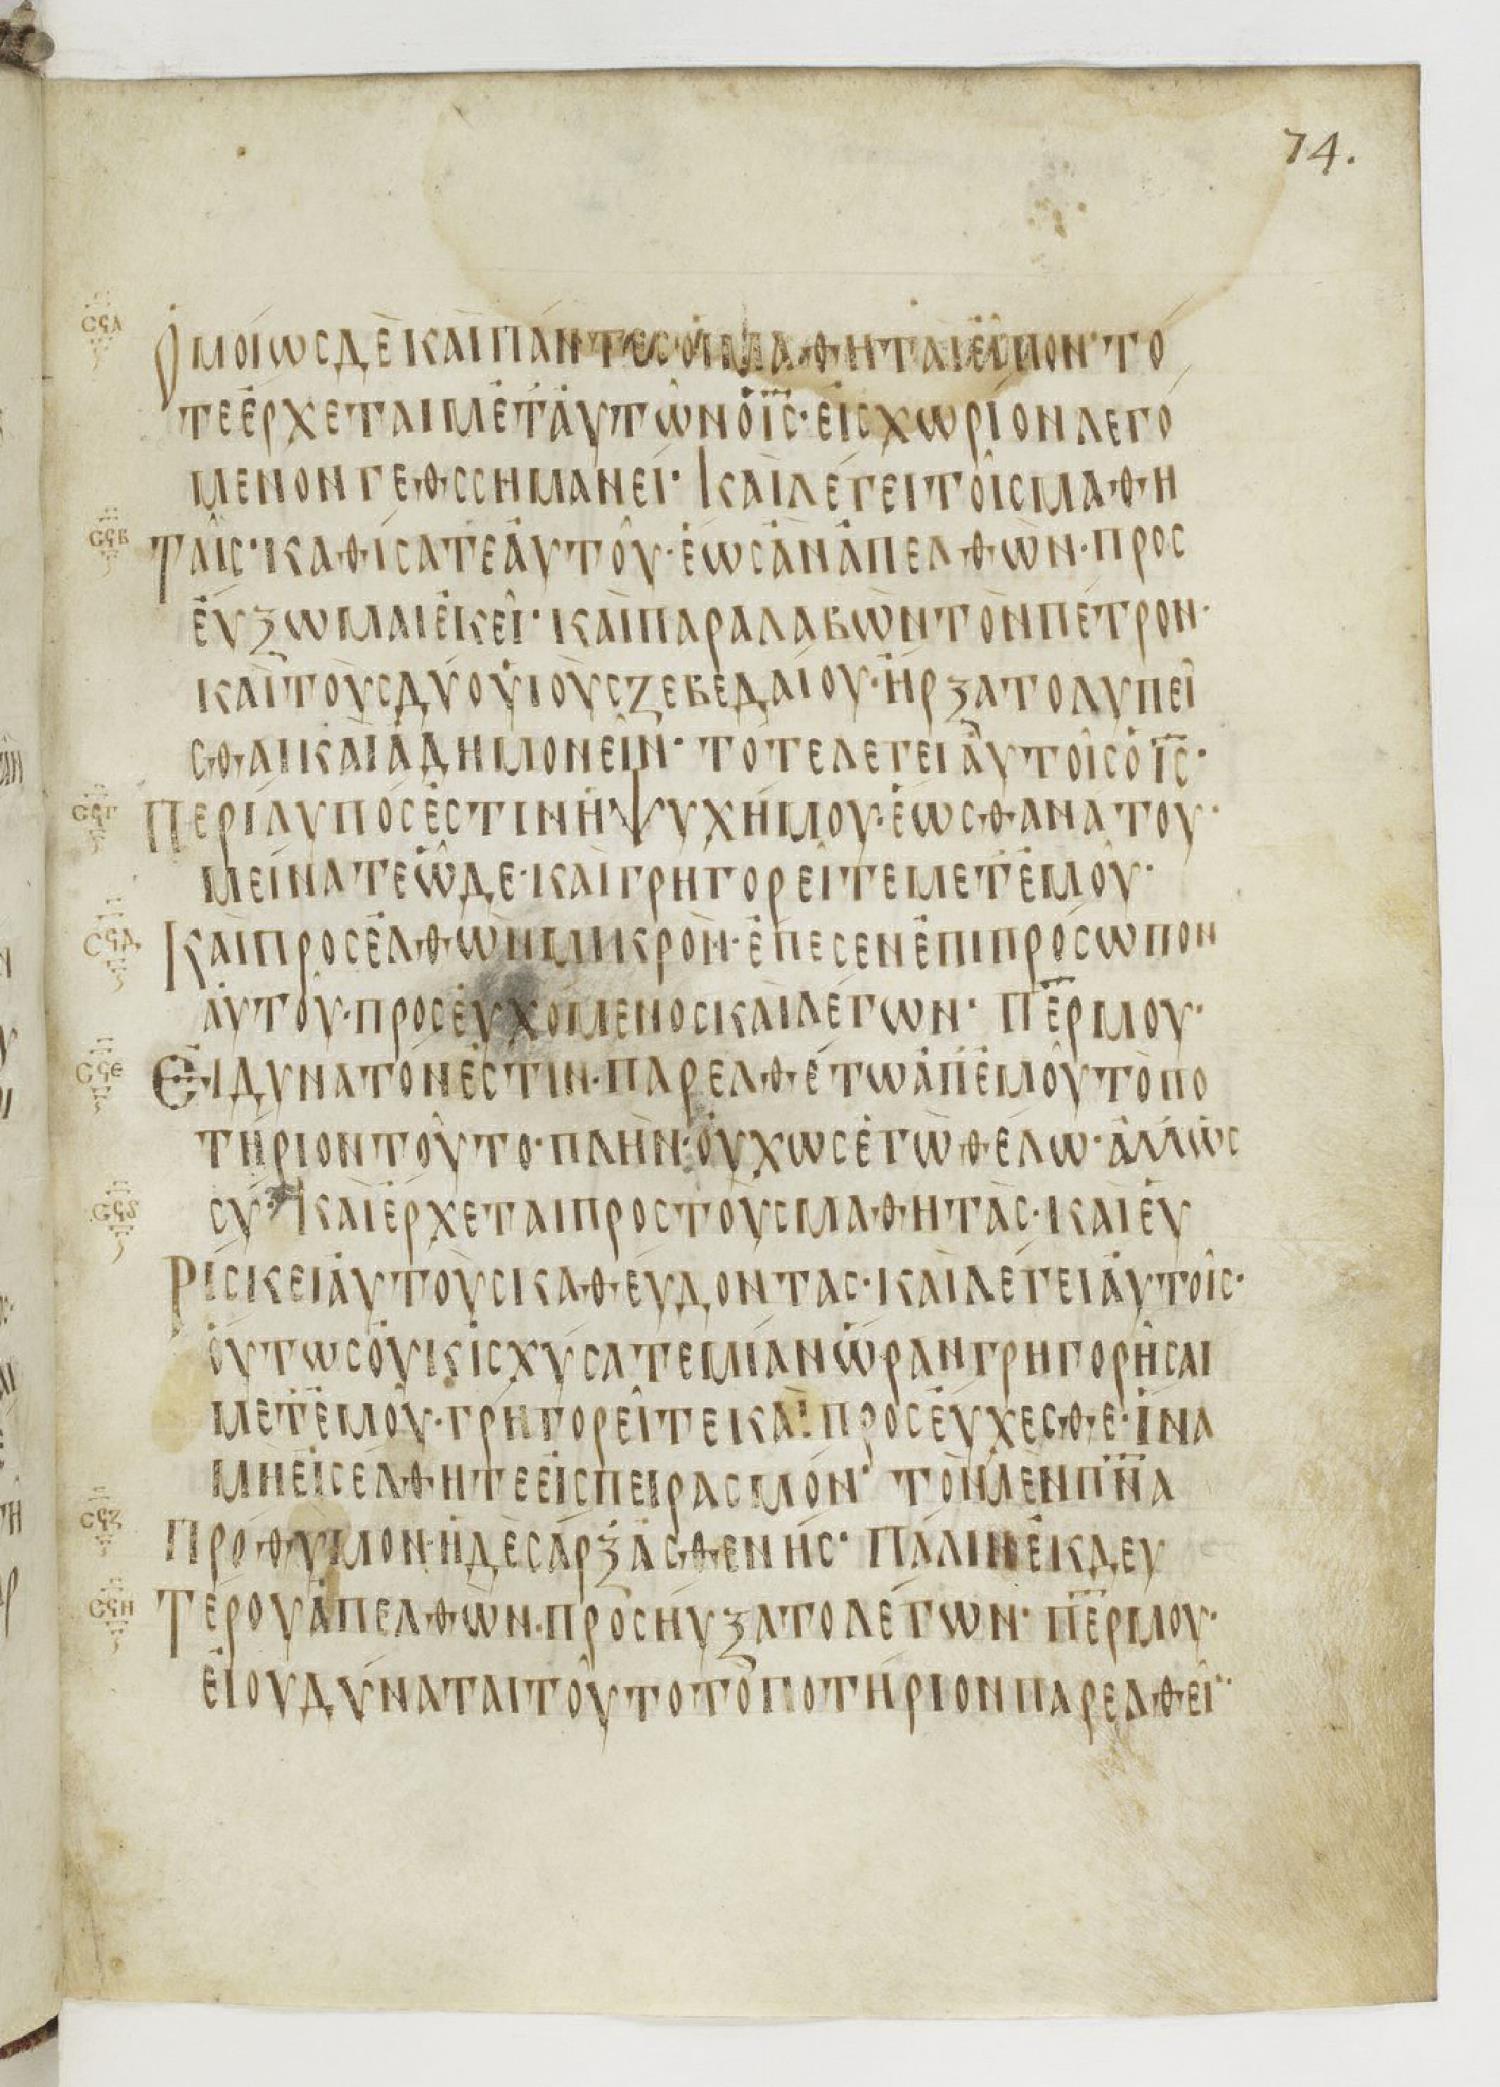 74.
Ὁμοίως δὲ καὶ πάντες οἱ μαθηταὶ εἶπον· τό
τε ἔρχεται μετ' αὐτῶν ὁ ις· εἰς χωρίον λεγό
μενον γεθσσημανεί· Καὶ λέγει τοῖς μαθη
ςϟβ Ταῖς· καθίσατε αὐτοῦ· ἕως ἂν ἀπελθὼν· προσ
εύξωμαι ἐκεῖ· καὶ παραλαβὼν τὸν πέτρον·
καὶ τοὺς δύο υἱοὺς ζεβεδαίου· ἤρξατο λυπεῖ
σθαι καὶ ἀδημονεῖν· τότε λέγει αὐτοῖς ὁ ις·
ςϟγ Περίλυπος ἐστιν ἡ ψυχή μου· ἕως θανάτου·
μείνατε ὧδε· καὶ γρηγορεῖτε μετ' ἐμοῦ·
ςϟδ Καὶ προσελθὼν μικρὸν· ἔπεσεν ἐπι πρόσωπον
αὐτοῦ· προσευχόμενος καὶ λέγων· Περ μου·
ςϟε Ει δυνατόν ἐστιν· παρελθέτω ἀπ' ἐμοῦ τὸ πο
τήριον τοῦτο· πλὴν· οὐχ ως ἐγὼ θέλω· ἀλλ' ὡς
σύ· Καὶ ἔρχεται προς τοὺς μαθητάς· καὶ εὑ
Ρίσκει αὐτοὺς καθεύδοντας· καὶ λέγει αὐτοῖς·
οὕτως οὐκ ἰσχύσατε μίαν ὥραν γρηγορῆσαι
μετ' ἐμοῦ· γρηγορεῖτε καὶ προσεύχεσθε· ἵνα
μὴ εἰσελθητε εἰς πειρασμόν· τὸ μὲν πνα
ςϟζ Πρόθυμον· ἡ δὲ σάρξ ἀσθενής· Πάλιν ἐκ δευ
ςϟη Τέρου ἀπελθὼν· προσηύξατο λέγων· περ μου·
εἰ ου δύναται τοῦτο τὸ ποτήριον παρελθεῖ·